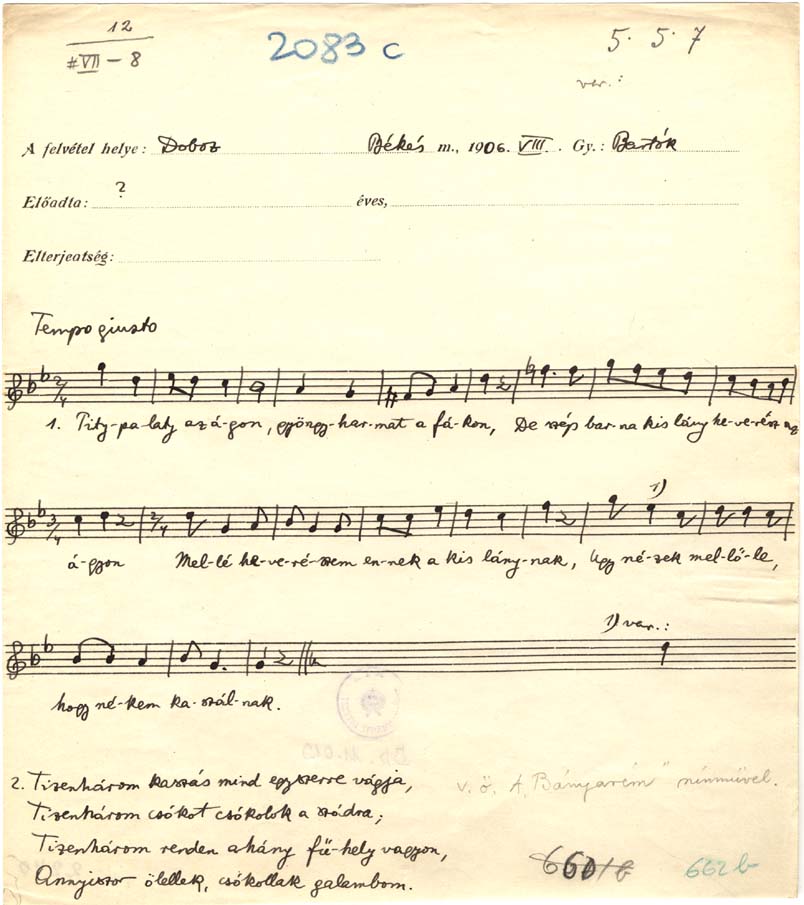 12
#VII – 8
2083 c
5. 5. 7
var.:
A felvétel helye: Doboz Békés m., 1906. VIII. Gy.: Bartók
Előadta: ? éves,
Elterjeatség:
Tempo giusto
2/4
1. Pity-pa-laty az á-gon, gyöngy-har-mat a fá-kon, De szép bar-na kis lány he-ve-rész az
3/4 2/4 1)
á-gyon Mel-lé he-ve-ré-szem en-nek a kis lány-nak, Úgy né-szek mel-lő-le,
1) var.:
hogy né-kem ka-szál-nak.
2. Tizenhárom kaszás mind egyszerre vágja,
Tizenhárom csókot csókolok a szádra;
Tizenhárom renden ahány fű-hely vagyon,
Annyiszor ölellek, csókollak galambom.
v. ö. A „Bányarém" népművel.
660/b
662 b